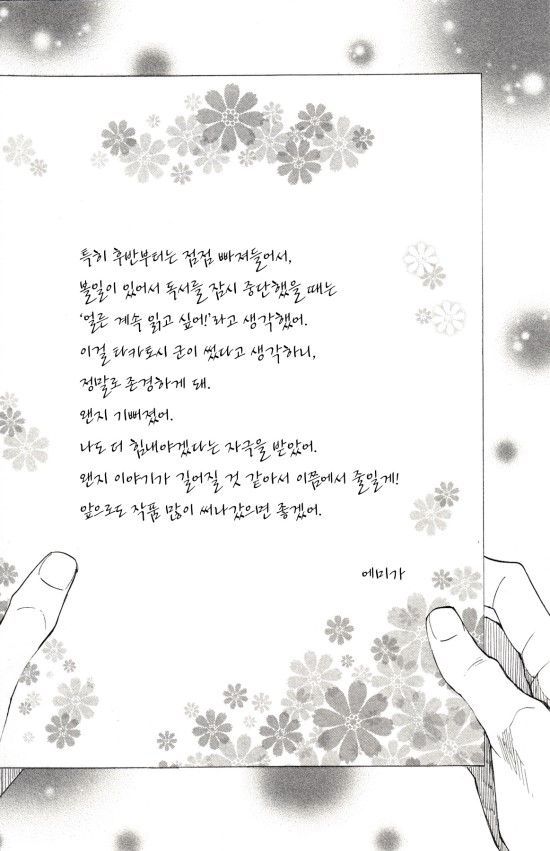 특히 후반부터는 점점 빠져들어서,
볼일이 있어서 독서를 잠시 중단했을 때는
‘얼른 계속 읽고 싶어!’라고 생각했어.
이걸 타카토시 군이 썼다고 생각하니,
정말로 존경하게 돼.
왠지 기뻐졌어.
나도 더 힘내야겠다는 자극을 받았어.
왠지 이야기가 길어질 것 같아서 이쯤에서 줄일게!
앞으로도 작품 많이 써나갔으면 좋겠어.
에미가